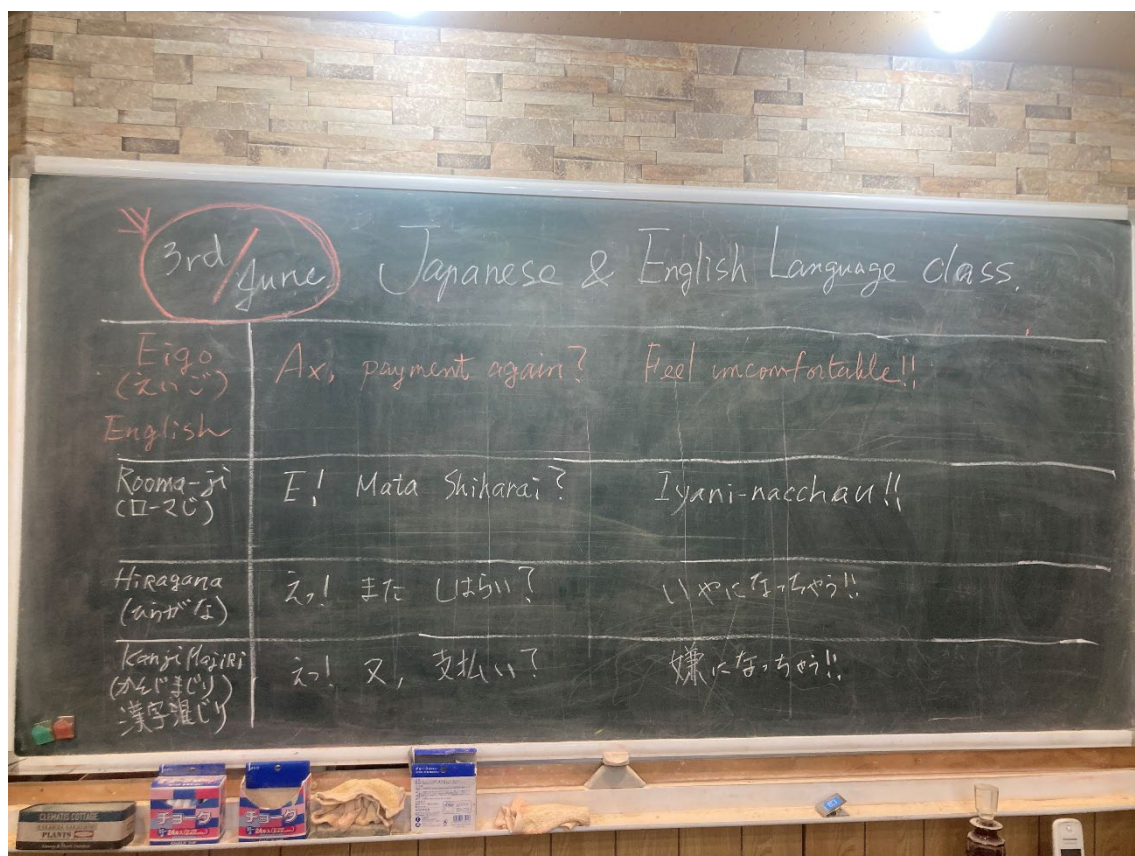 3rd/June Japanese & English Language class.
Eigo
(えいご)
English
Ax, payment again? Feel uncomfortable!!
Rooma-ji
(ローマじ)
E! Mata Shiharai? Iyani-nacchau!!
Hiragana
(ひらがな)
えっ! また しはらい? いやになっちゃう!!
Kanji Majiri
(かんじまじり)
漢字混じり
えっ! 又, 支払い? 嫌になっちゃう!!
CLEMATIS COTTAGE
PLANTS
チョーク
チョーク